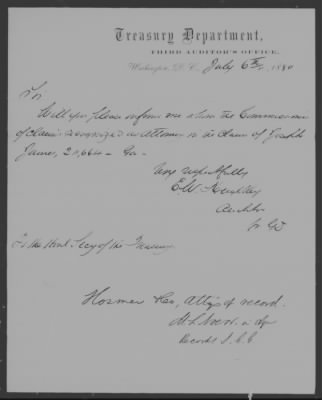 Treasury Department,
THIRD AUDITOR'S OFFICE,
Washington, D. C., July 6th, 1880
Sir
Will you please inform me whom the Commissioners
of Claims recognized as attorney in the claim of Joseph
James, 21,664 - Ga -
Very respectfully
E.W. Keightley
Auditor
To the Honl. Secy of the Treasury
Hosmer & Co, Attys of record.
Records